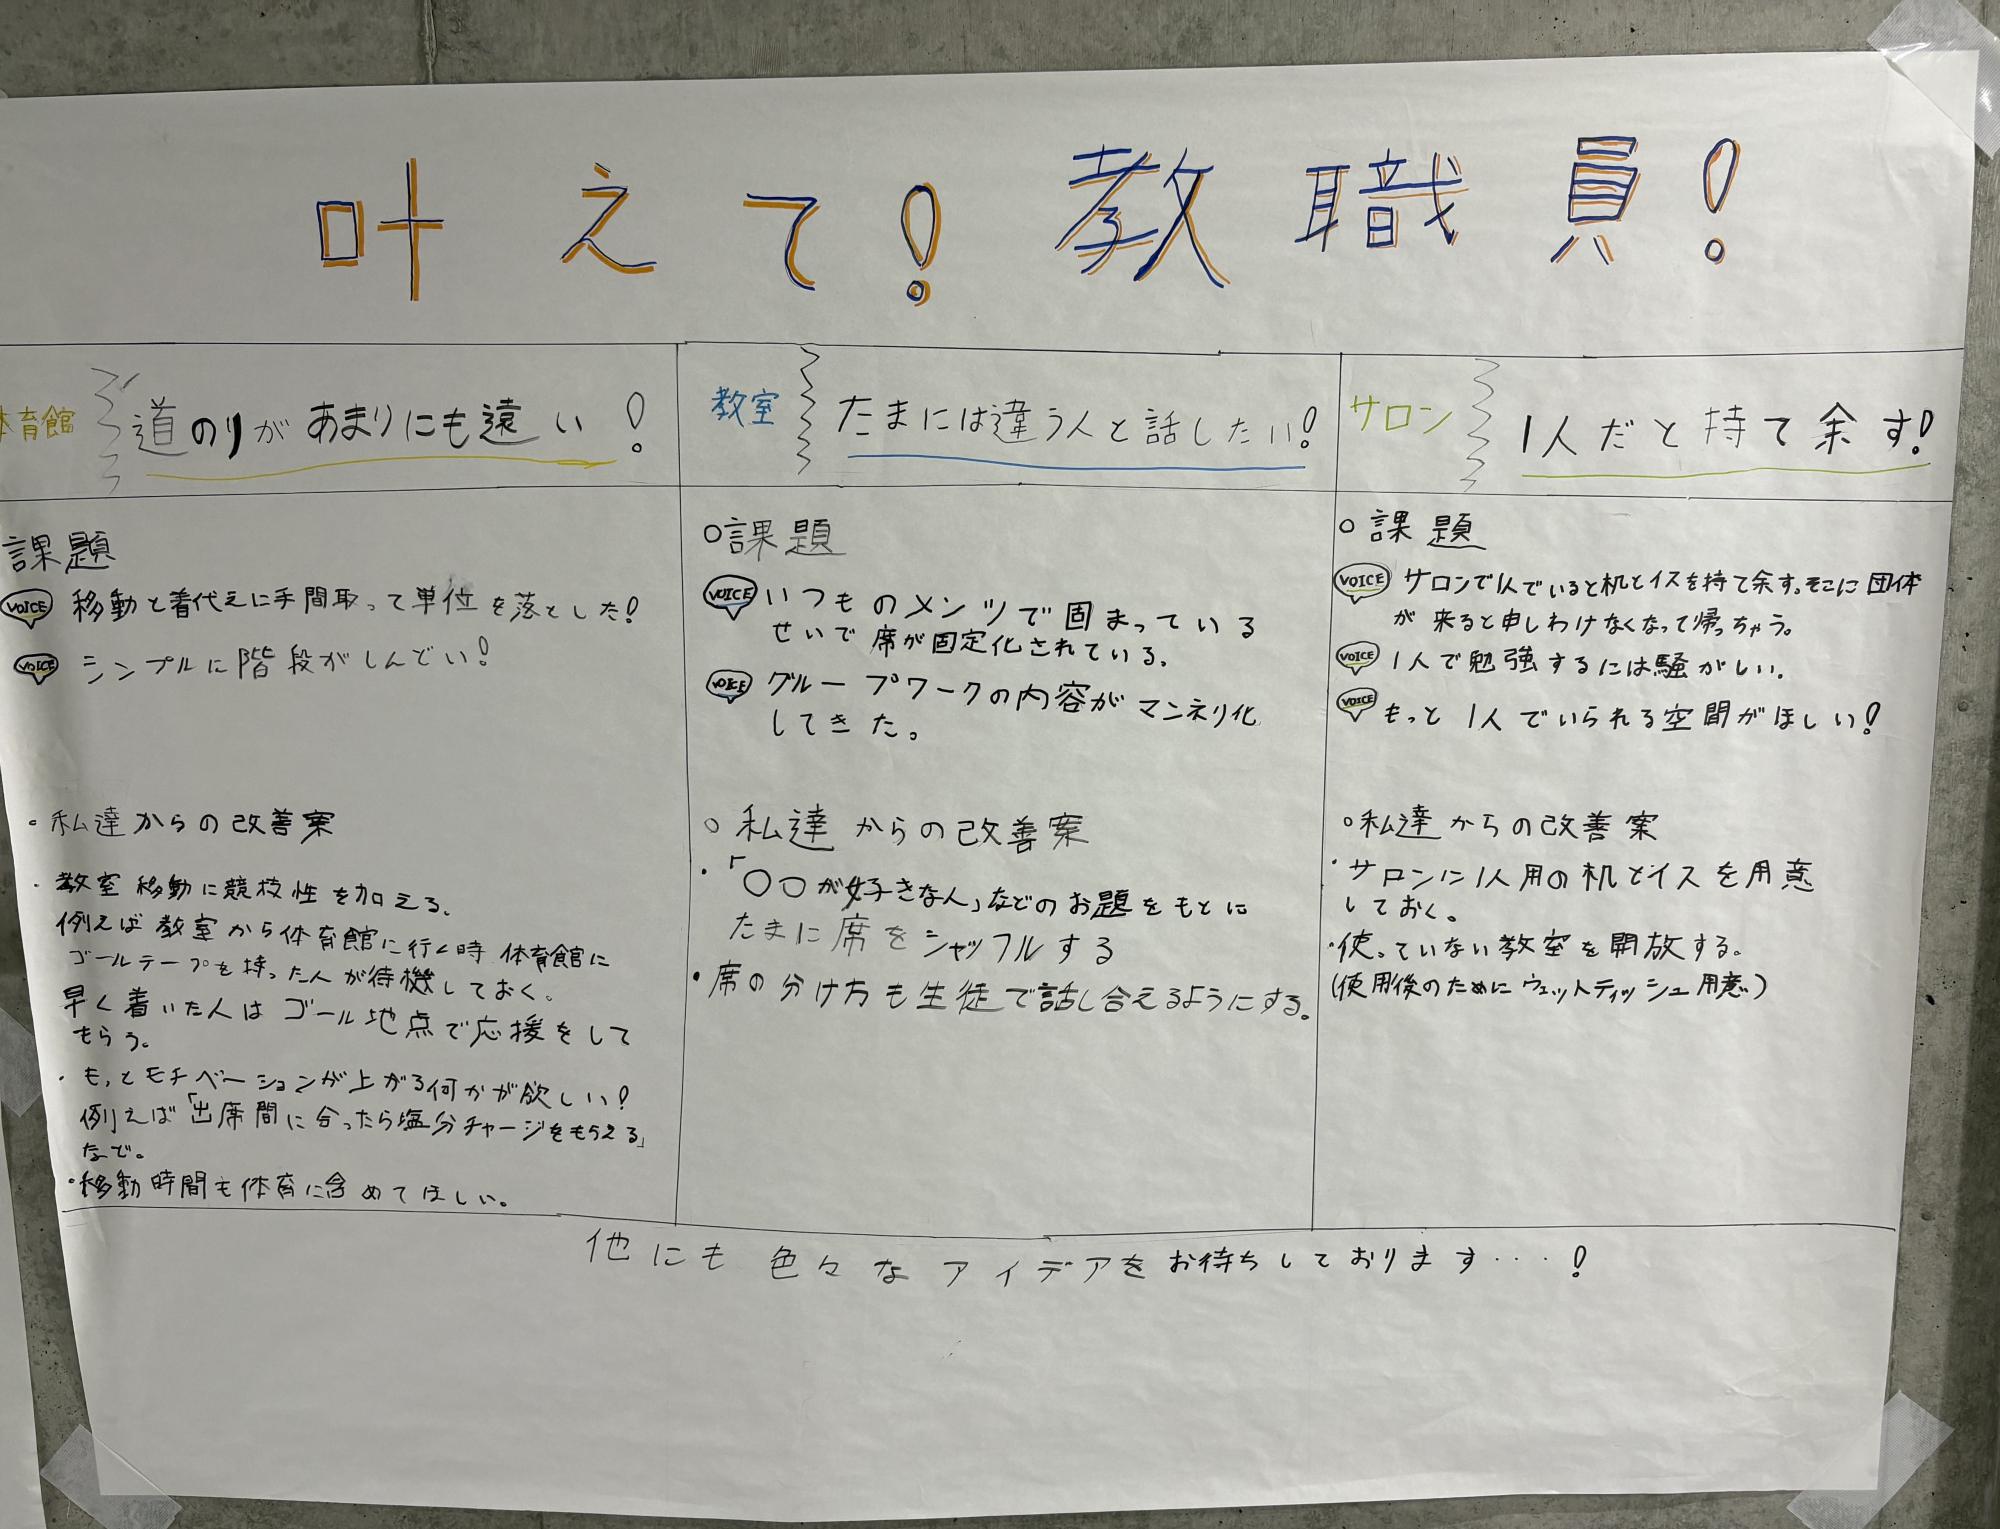 叶えて！教職員！
体育館
道のりがあまりにも遠い！
課題
VOICE 移動と着代えに手間取って単位を落とした！
VOICE シンプルに階段がしんどい！
・私達からの改善案
・教室移動に競技性を加える。
例えば教室から体育館に行く時 体育館に
ゴールテープを持った人が待機しておく。
早く着いた人はゴール地点で応援をして
もらう。
・もっとモチベーションが上がる何かが欲しい！
例えば「出席間に合ったら塩分チャージをもらえる」
など。
・移動時間も体育に含めてほしい。
教室
たまには違う人と話したい！
○課題
VOICE いつものメンツで固まっている
せいで席が固定化されている。
VOICE グループワークの内容がマンネリ化
してきた。
○私達からの改善案
・「○○が好きな人」などのお題をもとに
たまに席をシャッフルする
・席の分け方も生徒で話し合えるようにする。
サロン
1人だと持て余す！
○課題
VOICE サロンで1人でいると机とイスを持て余す。そこに団体
が来ると申しわけなくなって帰っちゃう。
VOICE 1人で勉強するには騒がしい。
VOICE もっと1人でいられる空間がほしい！
○私達からの改善案
・サロンに1人用の机とイスを用意
しておく。
・使っていない教室を開放する。
(使用後のためにウェットティッシュ用意)
他にも色々なアイデアをお待ちしております・・・！